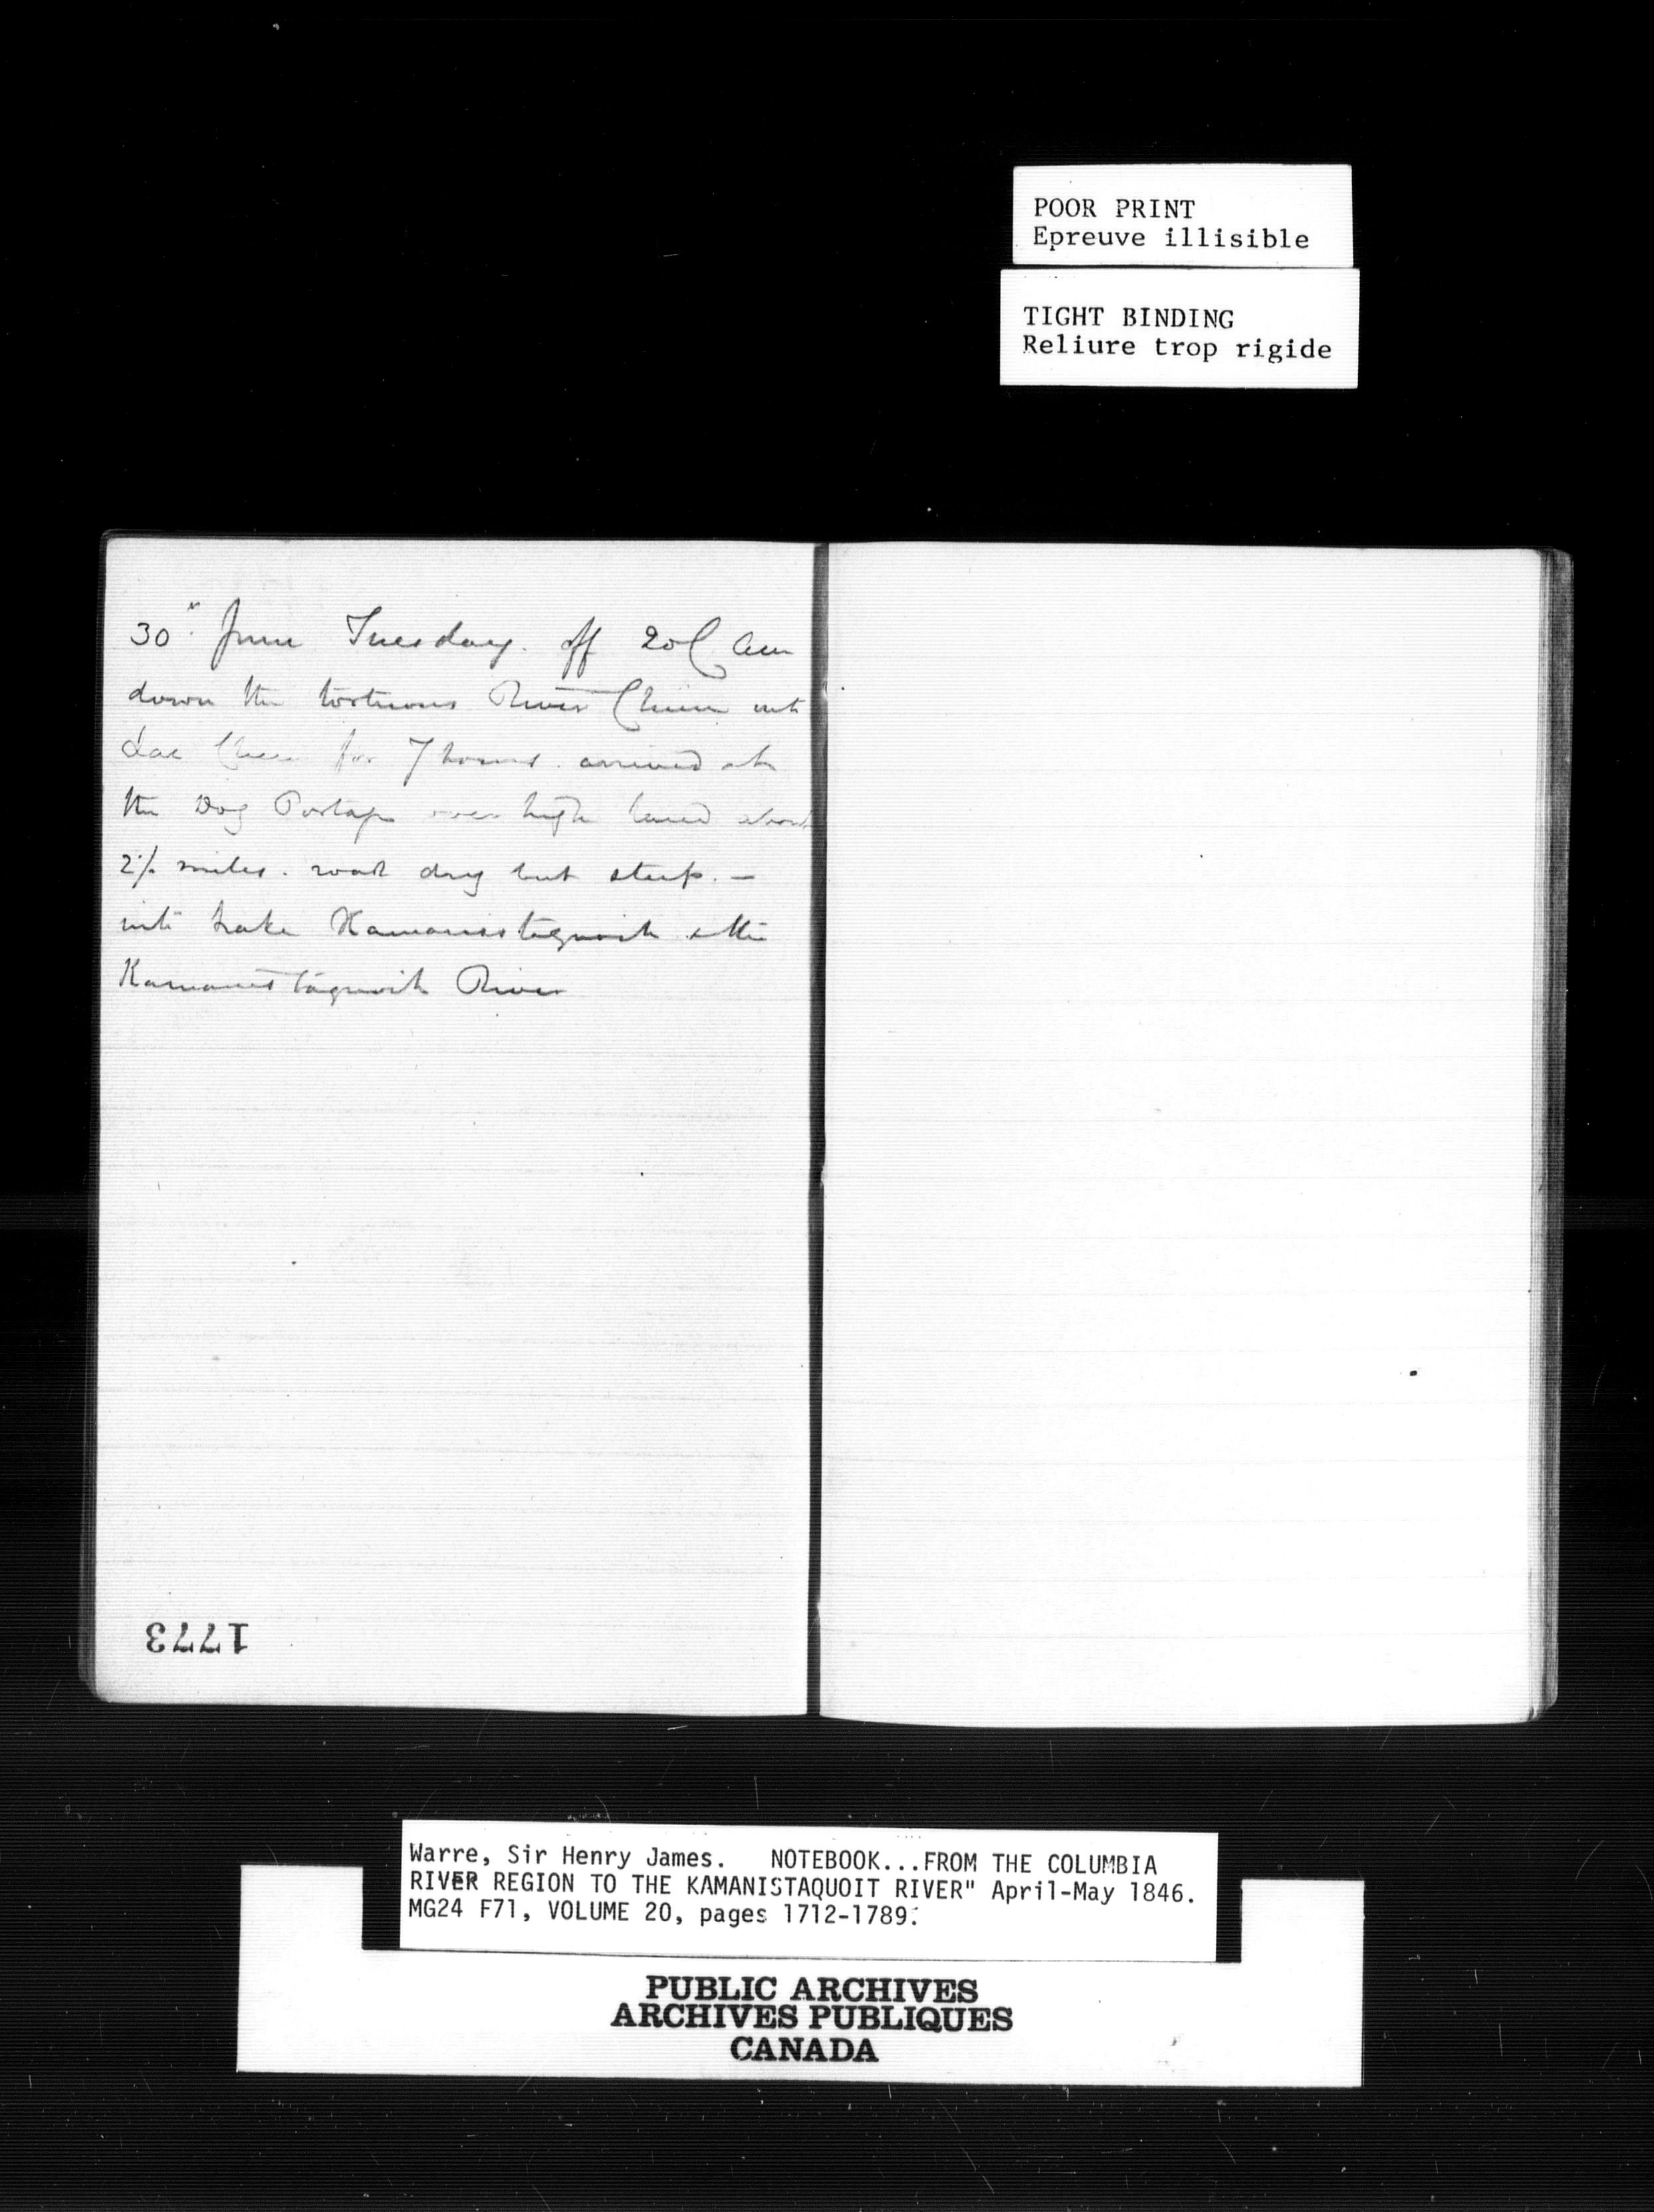 POOR PRINT
Epreuve illisible
TIGHT BINDING
Reliure trop rigide
30" June Tuesday. off 2oC am
down the tortuous River Chien into
Lac Chien for 7 hours. arrived at
the Dog Portage over high land about
2½ miles. road dry but steep. —
into Lake Kamanistaquoit & the
Kamanistaquoit River
1773
Warre, Sir Henry James. NOTEBOOK...FROM THE COLUMBIA
RIVER REGION TO THE KAMANISTAQUOIT RIVER" April-May 1846.
MG24 F71, VOLUME 20, pages 1712-1789.
PUBLIC ARCHIVES
ARCHIVES PUBLIQUES
CANADA